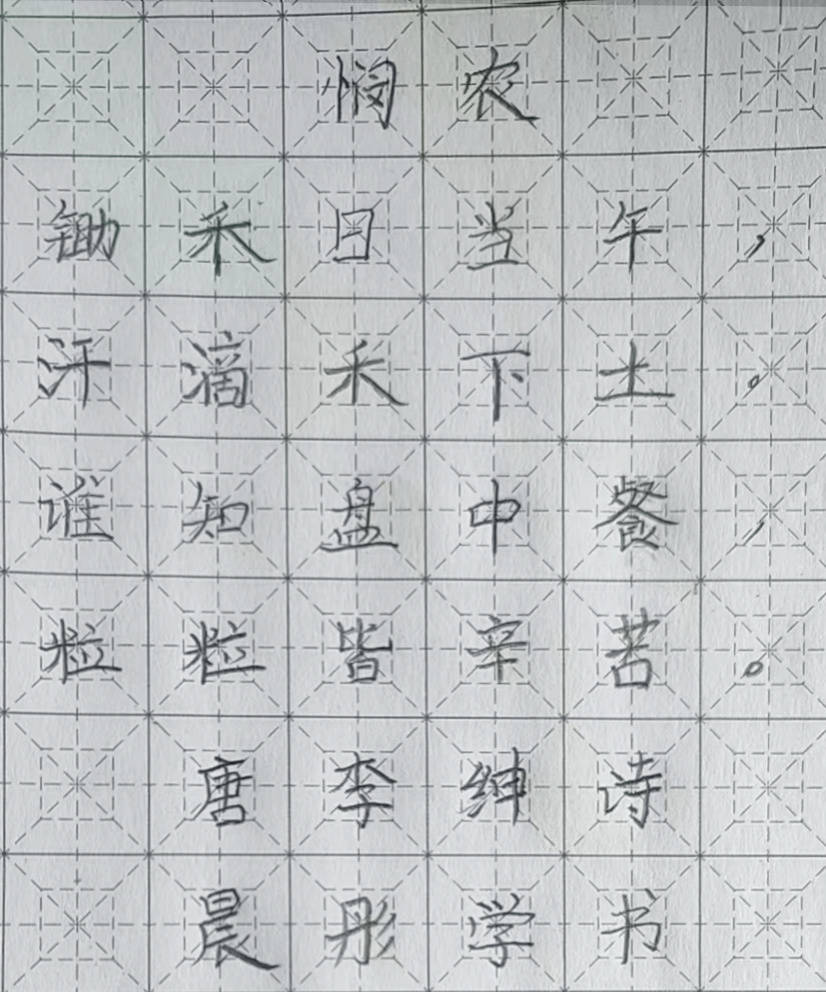 悯农
锄禾日当午，
汗滴禾下土。
谁知盘中餐，
粒粒皆辛苦。
唐李绅诗
晨彤学书